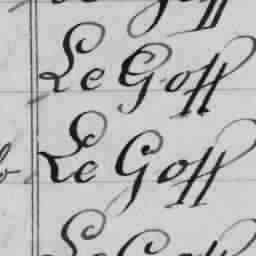 Le Goff
Le Goff